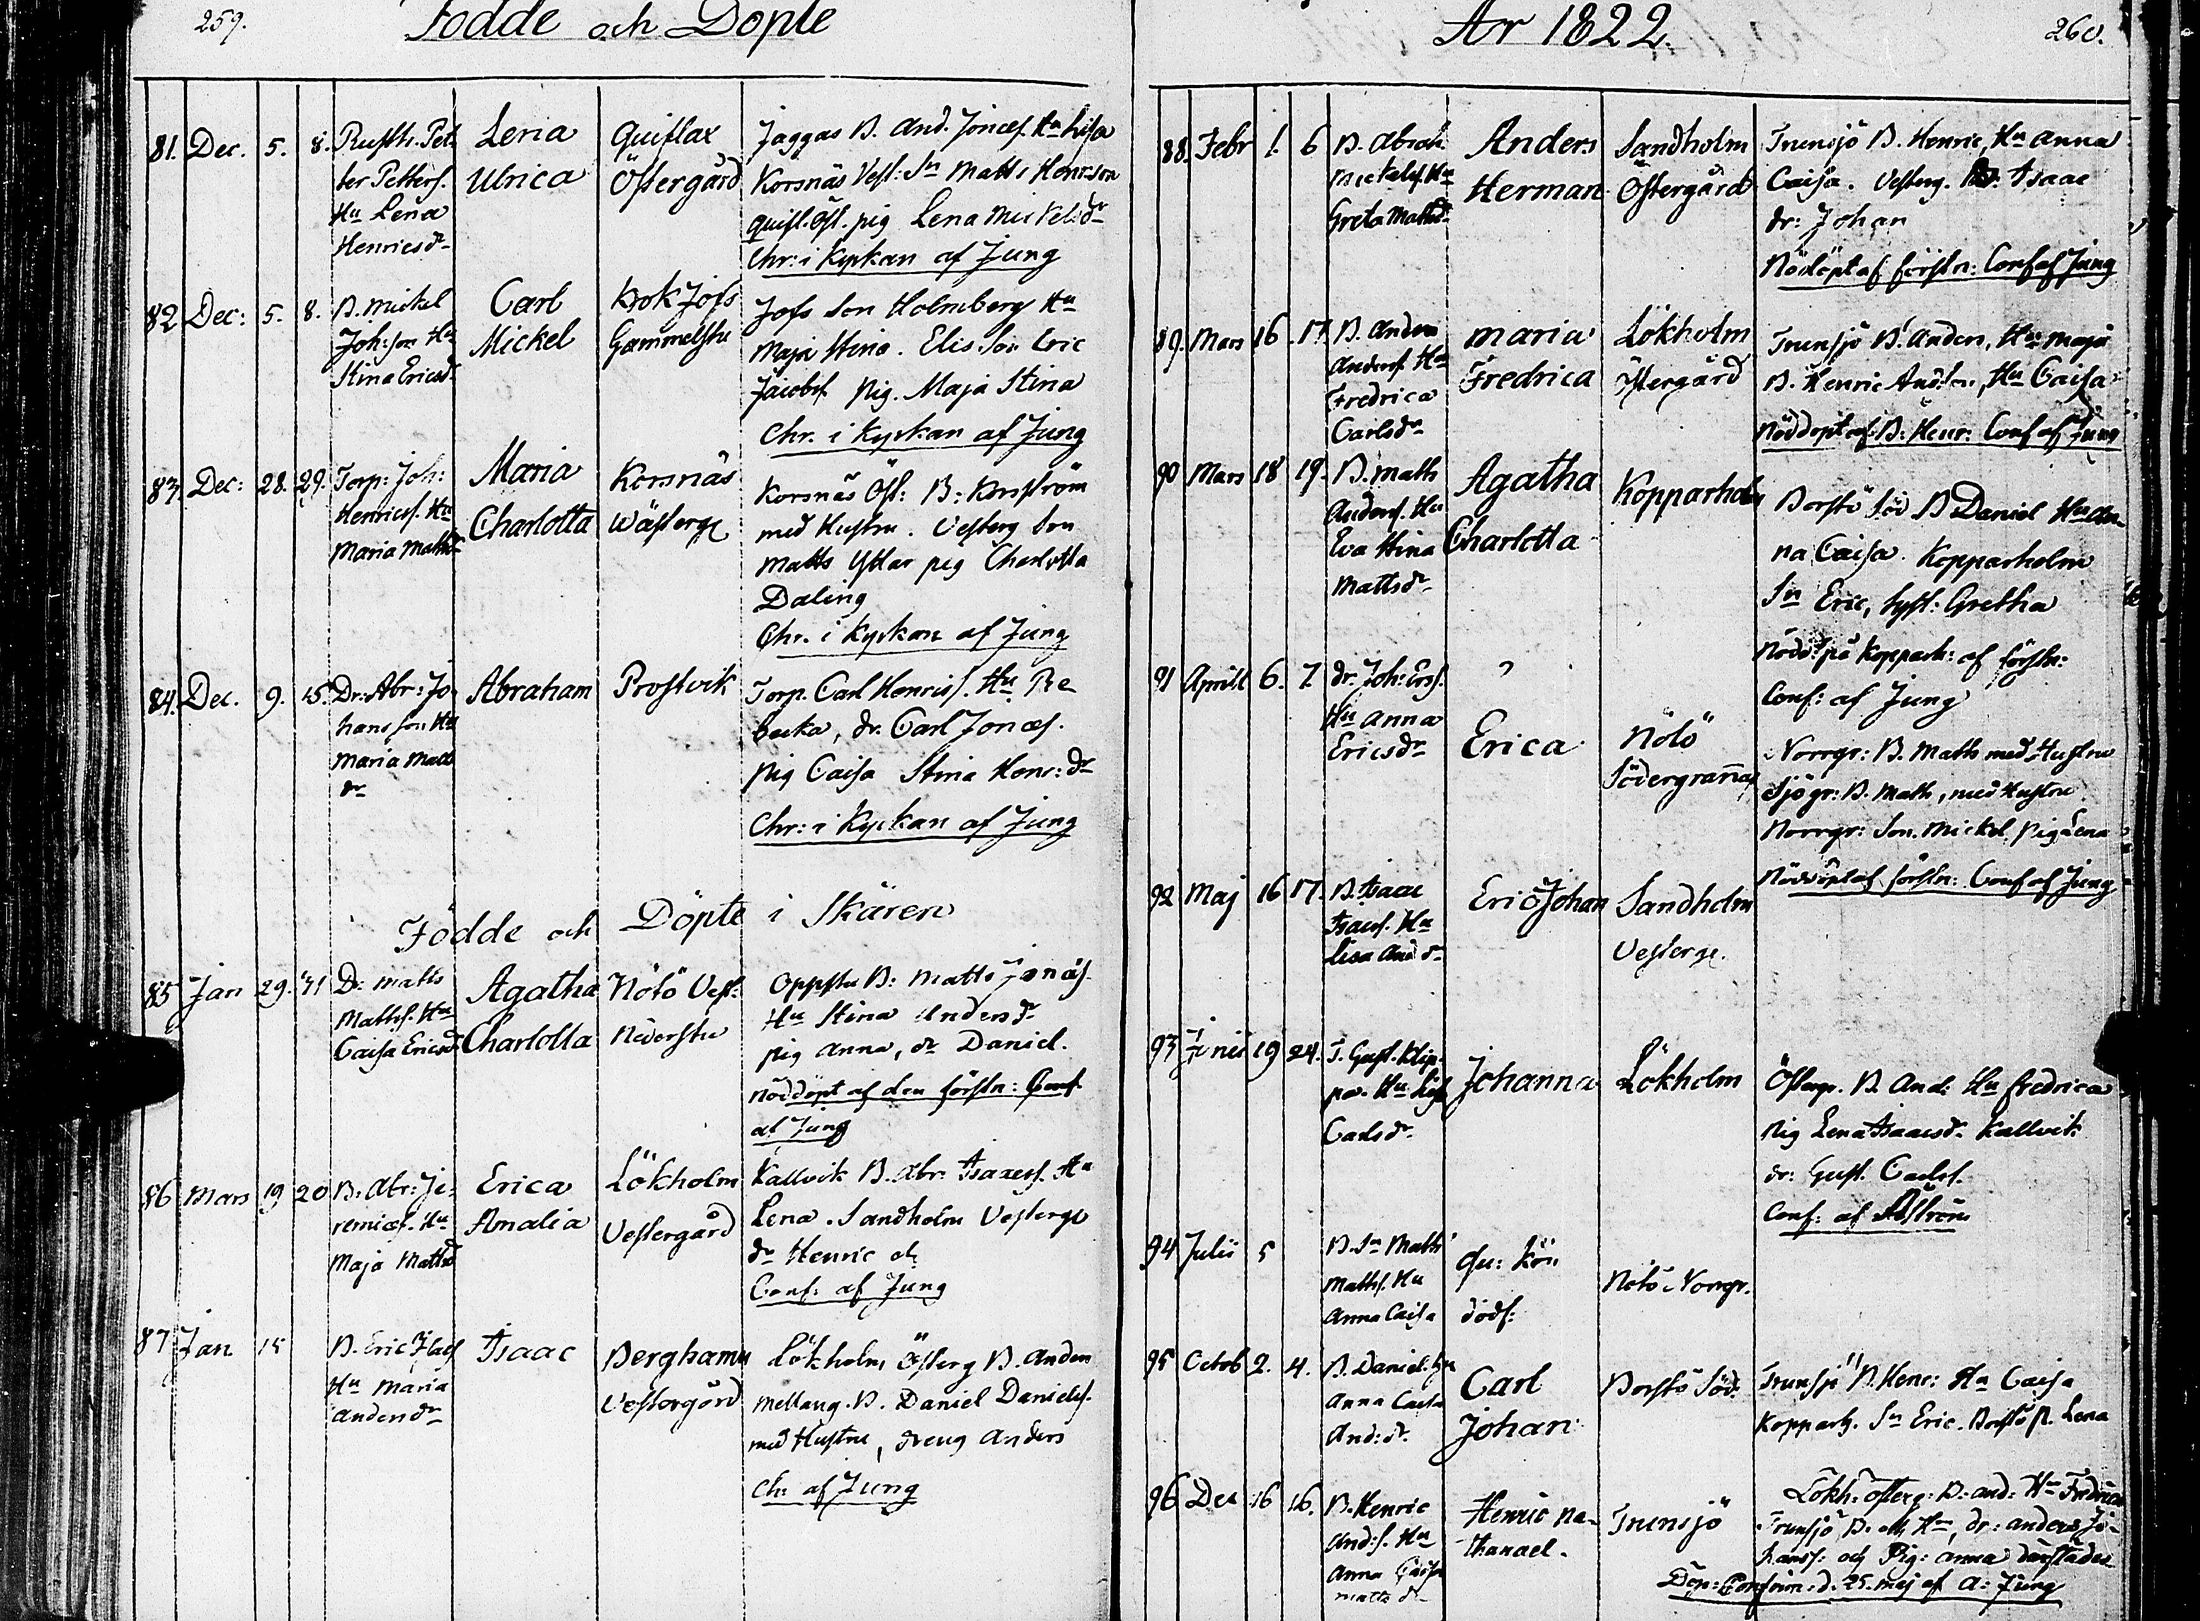 259.
Födde och Döpte
81. Dec. 5. 8. Rusth. Pet-
ter Petters.
Hu Lena
Henricsdr
Lena
Ulrica
Quiflax
Östergård
Jaggas B. And. Joncef. Hu Lisa
Korsnäs Vest: Sn Matts Henrson
quifl. Öst. pig Lena Mickelsdr
Chr: i Kyrkan af Jung
82 Dec: 5. 8. B. Mickel
Joh:son Hu
Stina Ericsdr
Carl
Mickel
Gammelstu
Jofs Son Holmberg Hu
Maja Stina. Elis. Son Eric
Jacobsf. Pig. Maja Stina
Chr. i Kyrkan af Jung
83 Dec: 28. 29. Torp: Joh:
Henricsf. Hu
Maria Mattsdr
Maria
Charlotta
Korsnäs
Wästerg
Korsnäs Öst: B: Korström
med Hustru. Vesterg Son
Matts Yttar pig Charlotta
Daling
Chr. i Kyrkan af Jung
84. Dec. 9. 15. Dr. Abr: Jo-
hansson Hu
Maria Matts
dr
Abraham
Prostvik
Torp. Carl Henricsf. Hu Re-
becka, dr. Carl Joncef.
Pig Caisa Stina Henr: dr
Chr: i Kyrkan af Jung
Födde och Döpte i Skären
85 Jan 29. 31 D: Matts
Mattsf. Hu
Caisa Ericsdr
Agatha
Charlotta
Nötö Vest:
Nederstu
Oppstu B: Matts Jonäs.
Hu Stina Andersdr
pig Anna, dr Daniel.
Nöddöpt af den förstn: Conf.
af Jung
86 Mars 19 20 B. Abr: Je-
remiæf. Hu
Maja Mattsdr
Erica
Amalia
Lökholm
Vestergård
Kallvik B. Abr. Isaacsf. Hu
Lena. Sandholm Vesterge
dr Henric och
Conf: af Jung
87 Jan 15 B. Eric
Hu Maria
Andersdr
Isaac
Berghamn
Vestergård
Lökholm Österg B. Anders
Mellang. B. Daniel Danielsf.
med Hustru, dreng Anders
Chr af Jung
År 1822.
260.
88. Febr 1. 6 B. Abrah
Mickelsf. Hu
Greta Mattsdr
Anders
Herman
Sandholm
Östergård
Trunsjö B. Henric, Hu Anna
Caisa. Vesterg. B. Isaac
dr: Johan
Nödöpt af förstn: Conf af Jung
89. Mars 16. 17. B. Anders
Andersf. Hu
Fredrica
Carlsdr
Maria
Fredrica
Lökholm
Östergård
Trunsjö B. Anders, Hu Maja
B. Henric Andson, Hu Caisa
Nöddöpt af B: Henr: Conf af Jung
90 Mars 18 19. B. Matts
Andersf. Hu
Eva Stina
Mattsdr
Agatha
Charlotta
Kopparholm
Borstö Söd B Daniel Hu An-
na Caisa Kopparholm
Sn Eric, Syst: Gretha
Nödd: på Kopparh: af förstn:
Conf: af Jung
91 April 6. 7. dr. Joh: Ersf.
Hu Anna
Ericsdr
Erica
Nötö
Södergrannas
Norrgr: B. Matts med Hustru
Sjögr: B. Matts, med Hustru
Norrgr: Son. Mickel, Pig Lena
Nöddöpt af förstn: Conf af Jung
92 Maj 16 17. B. Isaac
Isacsf. Hu
Lisa And dr
Eric Johan
Sandholm
Vesterge.
93 Junii 19 24. T. Gust. Klip-
pa. Hu Lisa
Carlsdr
Johanna
Lökholm
Österge. B. And: Hu Fredrica
Pig Lena Isaacsdr Kallvik
dr: Gust. Carlsf.
Conf: af Åström
94 Julii 5 B. Sn Matts
Mattsf. Hu
Anna Caisa
Qu: Kön
dödf:
Nötö Norrgr.
95 Octob 2. 4. B. Daniel. Hu
Anna Caisa
And: dr.
Carl
Johan
Borstö Söd:
Trunsjö B. Henr: Hu Caisa
Kopparh. Sn Eric. Borstö P. Lena
96 Dec 16 16. B. Henric
And:f. Hu
Anna Caisa
Matts dr
Henric Na-
thanael.
Trunsjö
Lökh: österg: B: And: Hu Fredrica
Trunsjö B. och Hu, dr: Anders Jo-
hansf: och Pig: Anna därstädes
Döp: Confirm: d. 25. Maj af A: Jung